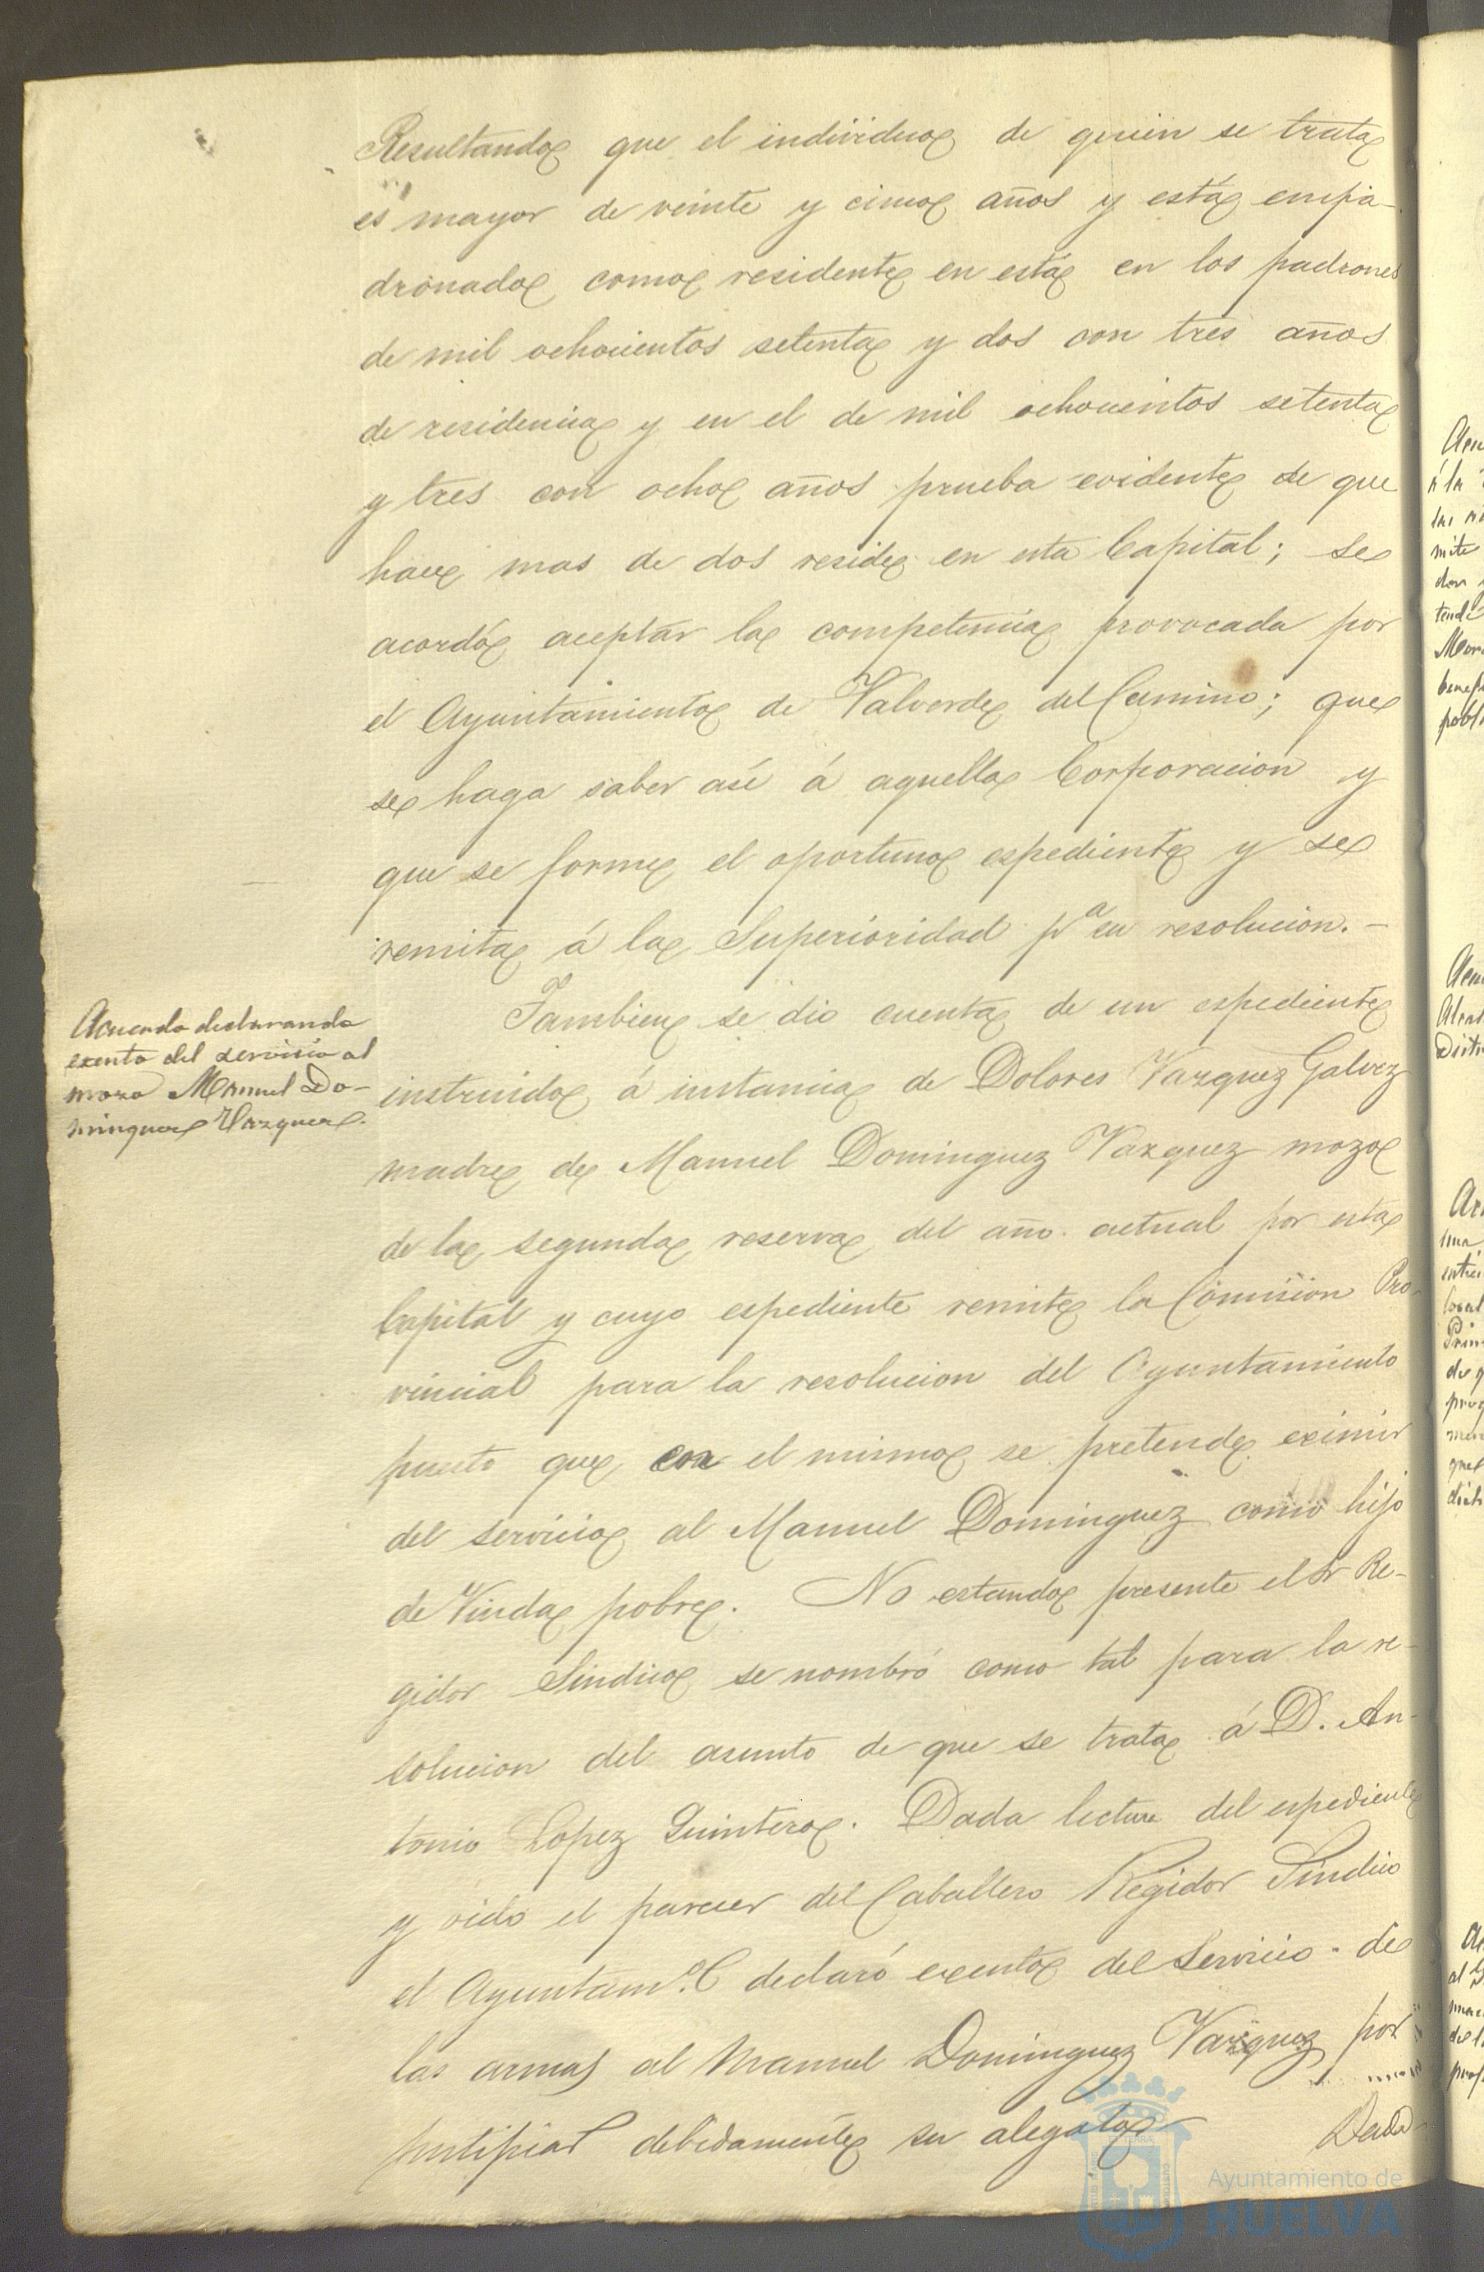 Resultando que el individuo de quien se trata
es mayor de veinte y cinco años y está empa-
dronado como residente en está en los padrones
de mil ochocientos setenta y dos con tres años
de residencia y en el de mil ochocientos setenta
y tres con ocho años prueba evidente de que
hace mas de dos reside en esta Capital; se
acordó aceptar la competencia provocada por
el Ayuntamiento de Valverde del Camino; que
se haga saber así á aquella Corporacion y
que se forme el oportuno espediente y se
remita á la Superioridad pª su resolucion.-
Acuerdo declarando
exento del servicio al
mozo Manuel Do-
minguez Vazquez.
Tambien se dio cuenta de un espediente
instruido á instancia de Dolores Vazquez Galvez
madre de Manuel Dominguez Vazquez mozo
de la segunda reserva del año actual por esta
Capital y cuyo espediente remite la Comision Pro-
vincial para la resolucion del Ayuntamiento
puesto que con el mismo se pretende eximir
del servicio al Manuel Dominguez como hijo
de Viuda pobre. No estando presente el Sr Re-
gidor Sindico se nombró como tal para la re-
solucion del asunto de que se trata á D. An-
tonio Lopez Quintero. Dada lectura del espediente
y oido el parecer del Caballero Regidor Sindico
el Ayuntam.º declaró exento del Servicio de
las armas al Manuel Dominguez Vazquez por
justificar debidamente su alegato
Dada
Ayuntamiento de
HUELVA